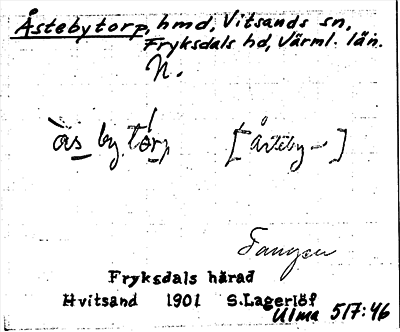 Åstebytorp, hmd, Vitsands sn,
Fryksdals hd, Värml. län.
N.
ås by tórp [Åsteby-]
Fryksdals härad
Hvitsand 1901 S.Lagerlöf
Ulma 517:46